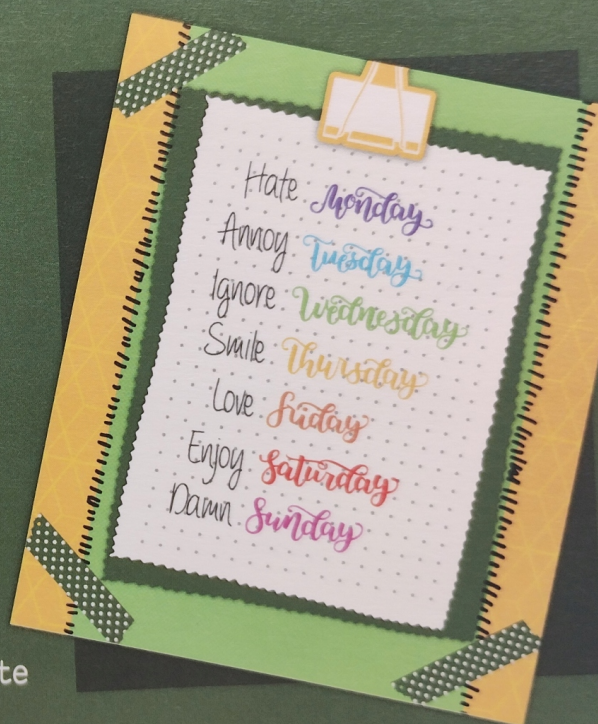 Hate Monday
Annoy Tuesday
Ignore Wednesday
Smile Thursday
Love Friday
Enjoy Saturday
Damn Sunday